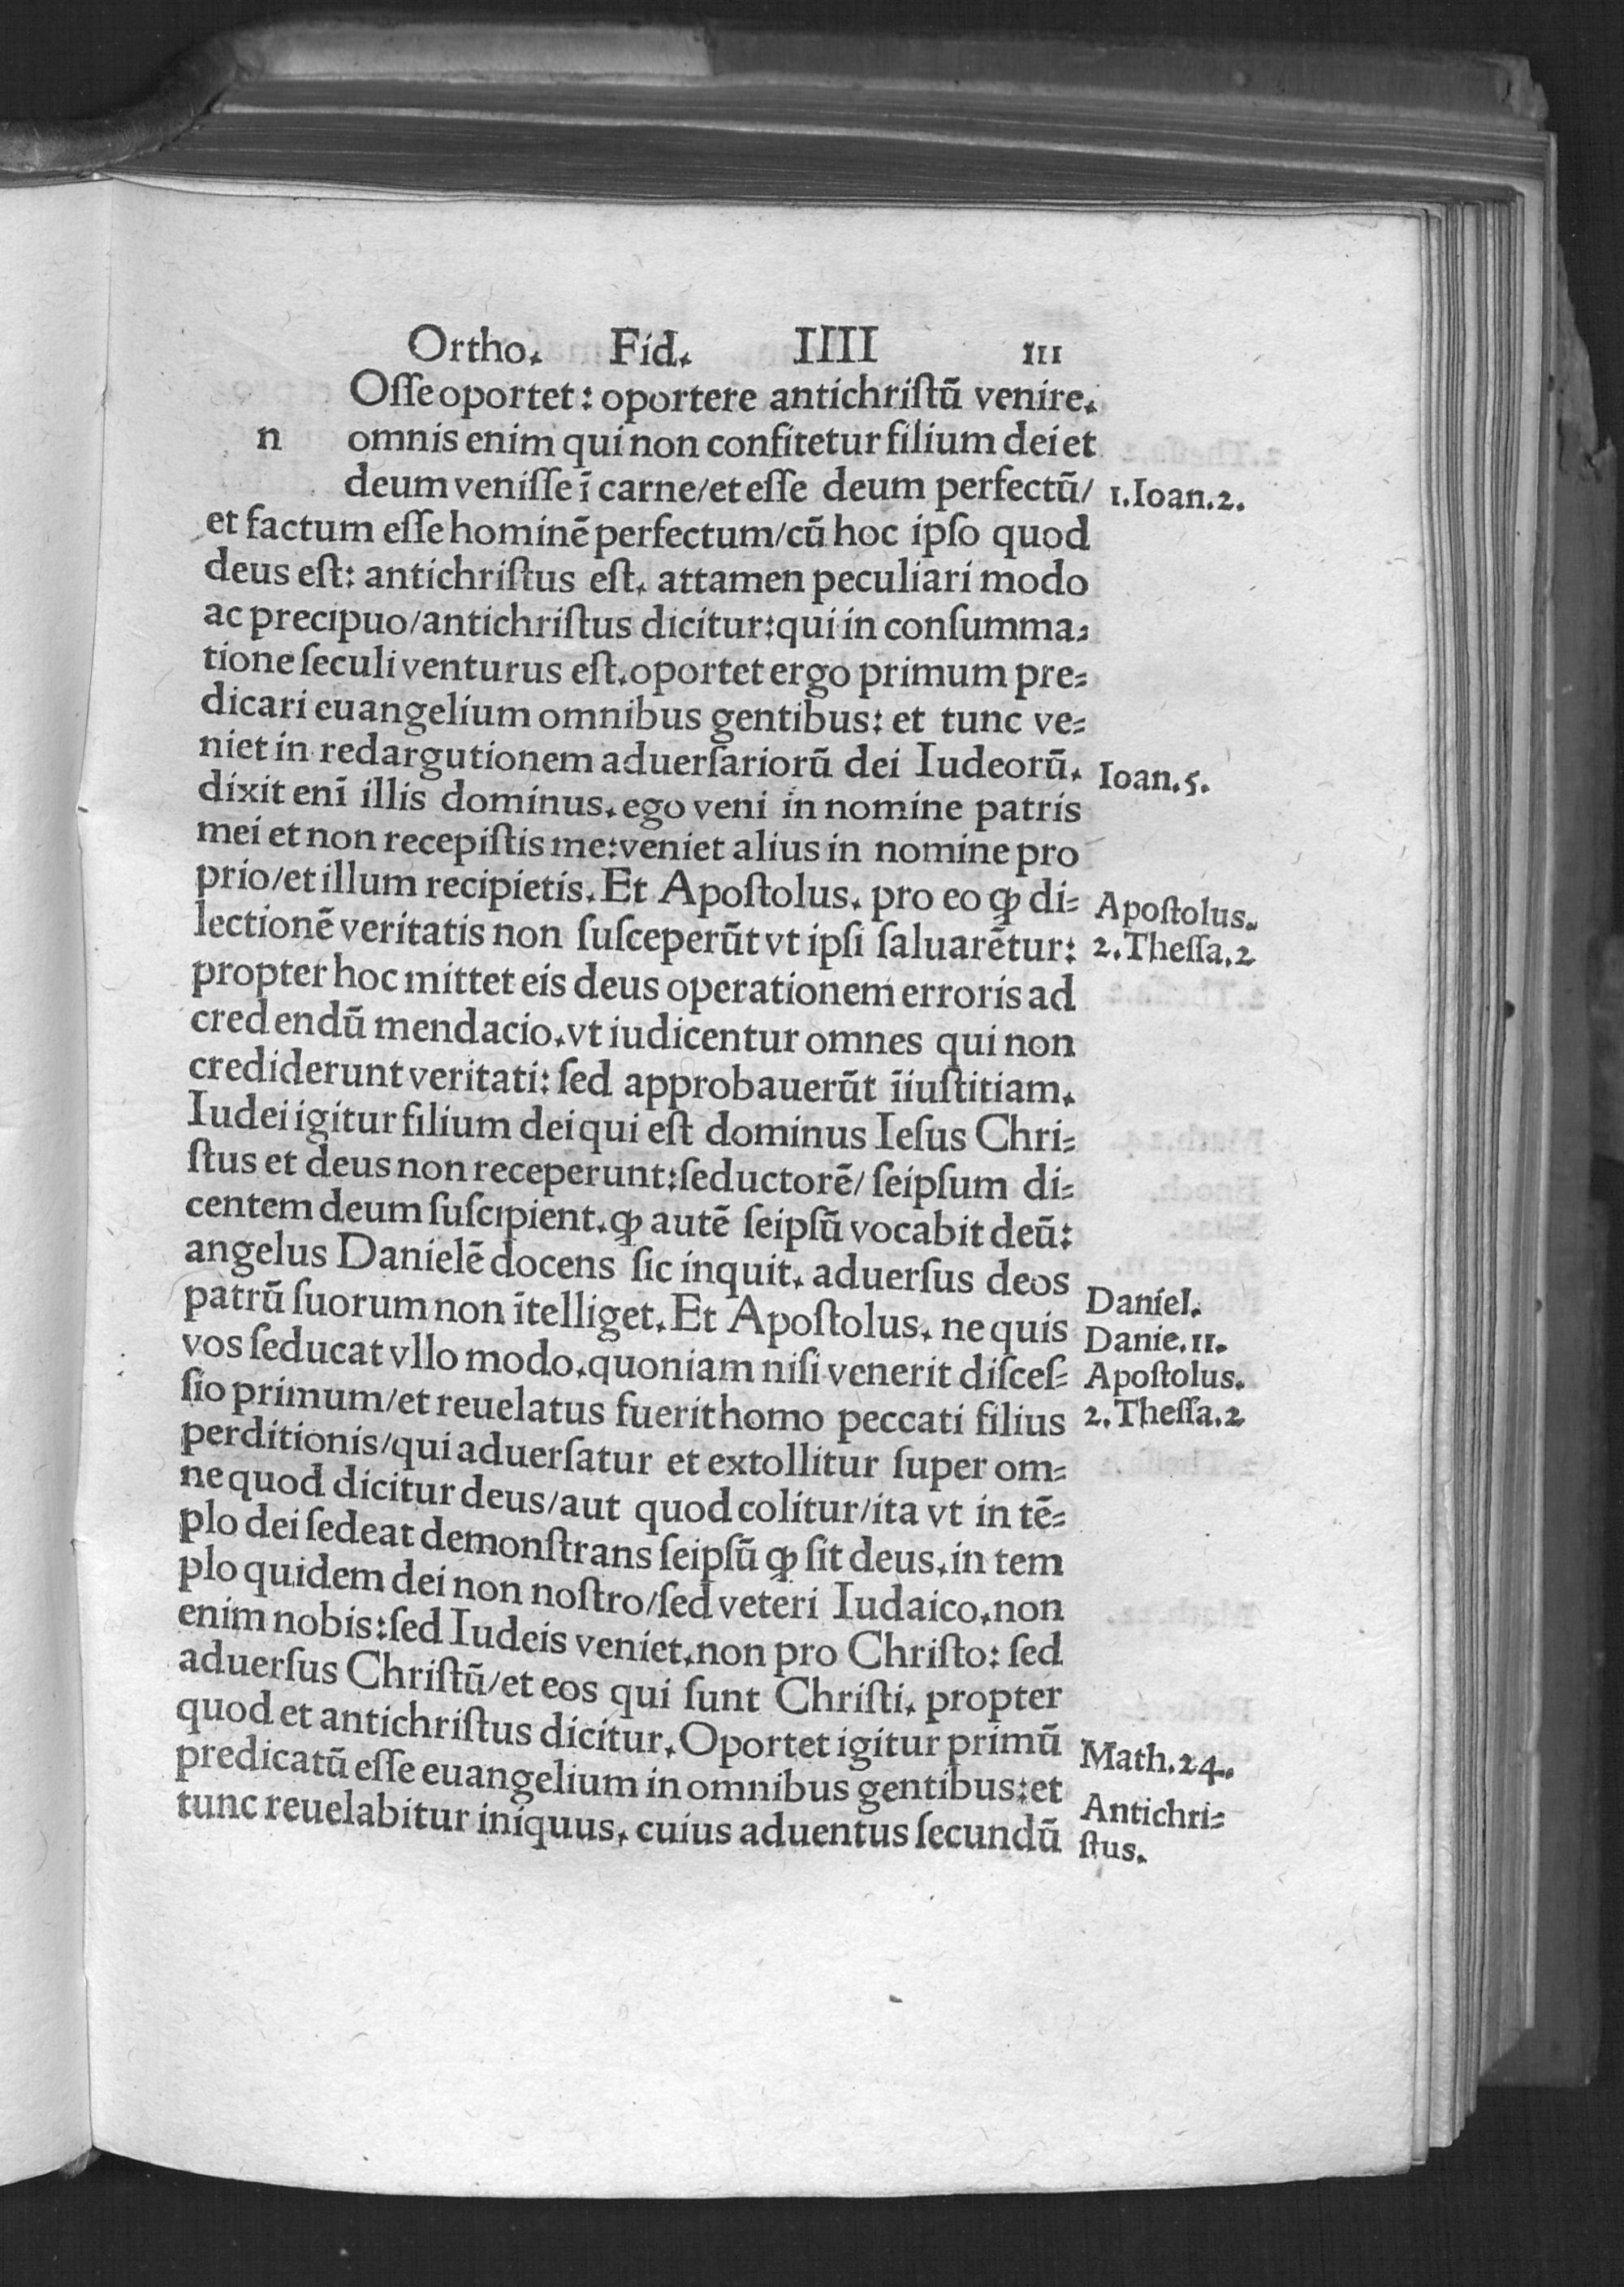 Ortho. Fid. IIII III
Oſſe oportet: oportere antichriſtũ venire.
n omnis enim qui non confitetur filium dei et
deum veniſſe ĩ carne/et eſſe deum perfectũ/ 1.Ioan.2.
et factum eſſe hominẽ perfectum/cũ hoc ipſo quod
deus eſt: antichriſtus eſt. attamen peculiari modo
ac precipuo/antichriſtus dicitur:qui in conſumma-
tione ſeculi venturus eſt.oportet ergo primum pre-
dicari euangelium omnibus gentibus: et tunc ve-
niet in redargutionem aduerſariorũ dei Iudeorũ. Ioan.5.
dixit enĩ illis dominus.ego veni in nomine patris
mei et non recepiſtis me:veniet alius in nomine pro
prio/et illum recipietis.Et Apoſtolus. pro eo ꝙ di- Apoſtolus.
lectionẽ veritatis non ſuſceperũt vt ipſi ſaluarẽtur: 2.Theſſa.2
propter hoc mittet eis deus operationem erroris ad
credendũ mendacio.vt iudicentur omnes qui non
crediderunt veritati: ſed approbauerũt ĩiuſtitiam.
Iudei igitur filium dei qui eſt dominus Ieſus Chri-
ſtus et deus non receperunt:ſeductorẽ/ ſeipſum di-
centem deum ſuſcipient.ꝙ autẽ ſeipſũ vocabit deũ:
angelus Danielẽ docens ſic inquit. aduerſus deos Daniel.
patrũ ſuorum non ĩtelliget.Et Apoſtolus. ne quis Danie.11.
vos ſeducat vllo modo.quoniam niſi venerit diſceſ- Apoſtolus.
ſio primum/et reuelatus fuerit homo peccati filius 2.Theſſa.2
perditionis/qui aduerſatur et extollitur ſuper om-
ne quod dicitur deus/aut quod colitur/ita vt in tẽ-
plo dei ſedeat demonſtrans ſeipſũ ꝙ ſit deus.in tem
plo quidem dei non noſtro/ſed veteri Iudaico.non
enim nobis:ſed Iudeis veniet.non pro Chriſto: ſed
aduerſus Chriſtũ/et eos qui ſunt Chriſti. propter
quod et antichriſtus dicitur.Oportet igitur primũ Math.24.
predicatũ eſſe euangelium in omnibus gentibus:et Antichri-
tunc reuelabitur iniquus. cuius aduentus ſecundũ ſtus.